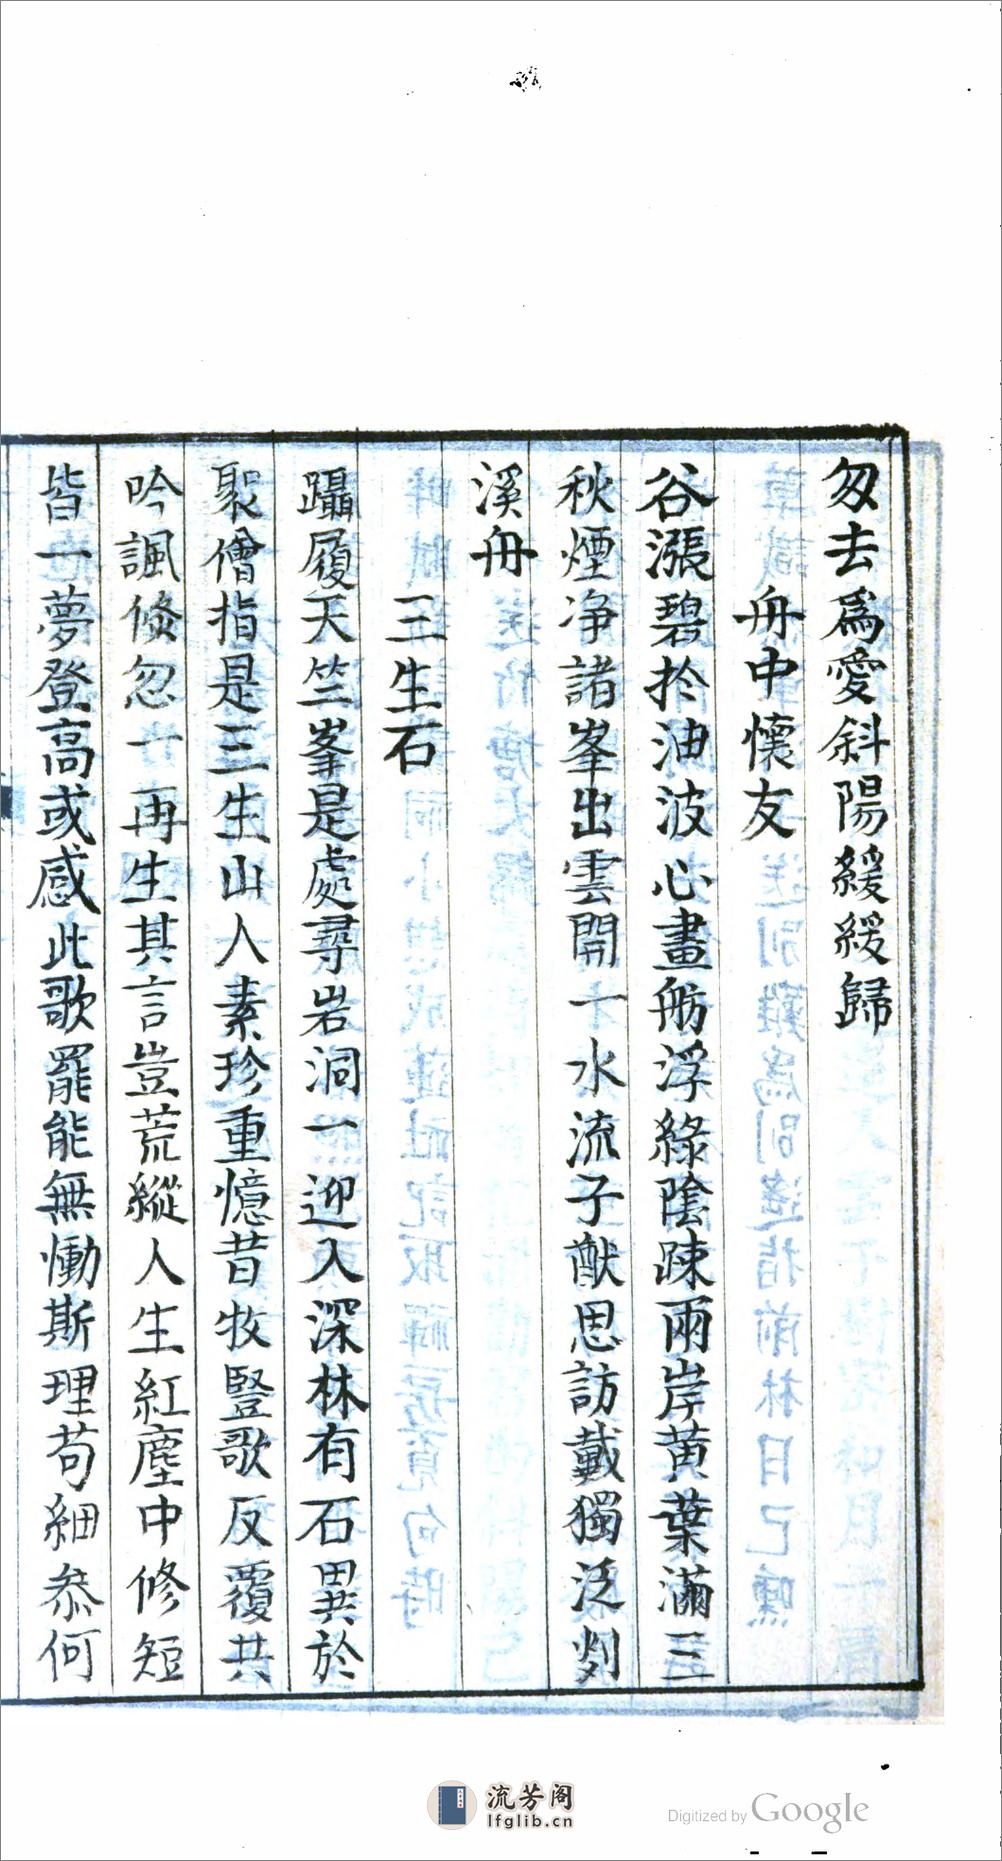 匆去爲愛斜陽緩緩歸
舟中懷友
谷漲碧扵油波心畫舫浮綠陰踈兩岸黃葉滿三
秋煙净諸峯出雲開一水流子猷思訪戴獨泛剡
溪舟
三生石
躡履天竺峯是處尋岩洞一迎入深林有石異於
聚僧指是三生山人素珍重憶昔牧豎歌反覆共
吟諷倐忽一再生其言豈荒縱人生紅塵中修短
皆一夢登高或感此歌罷能無慟斯理苟細叅何
流芳阁
lfglib.cn
Digitized by Google